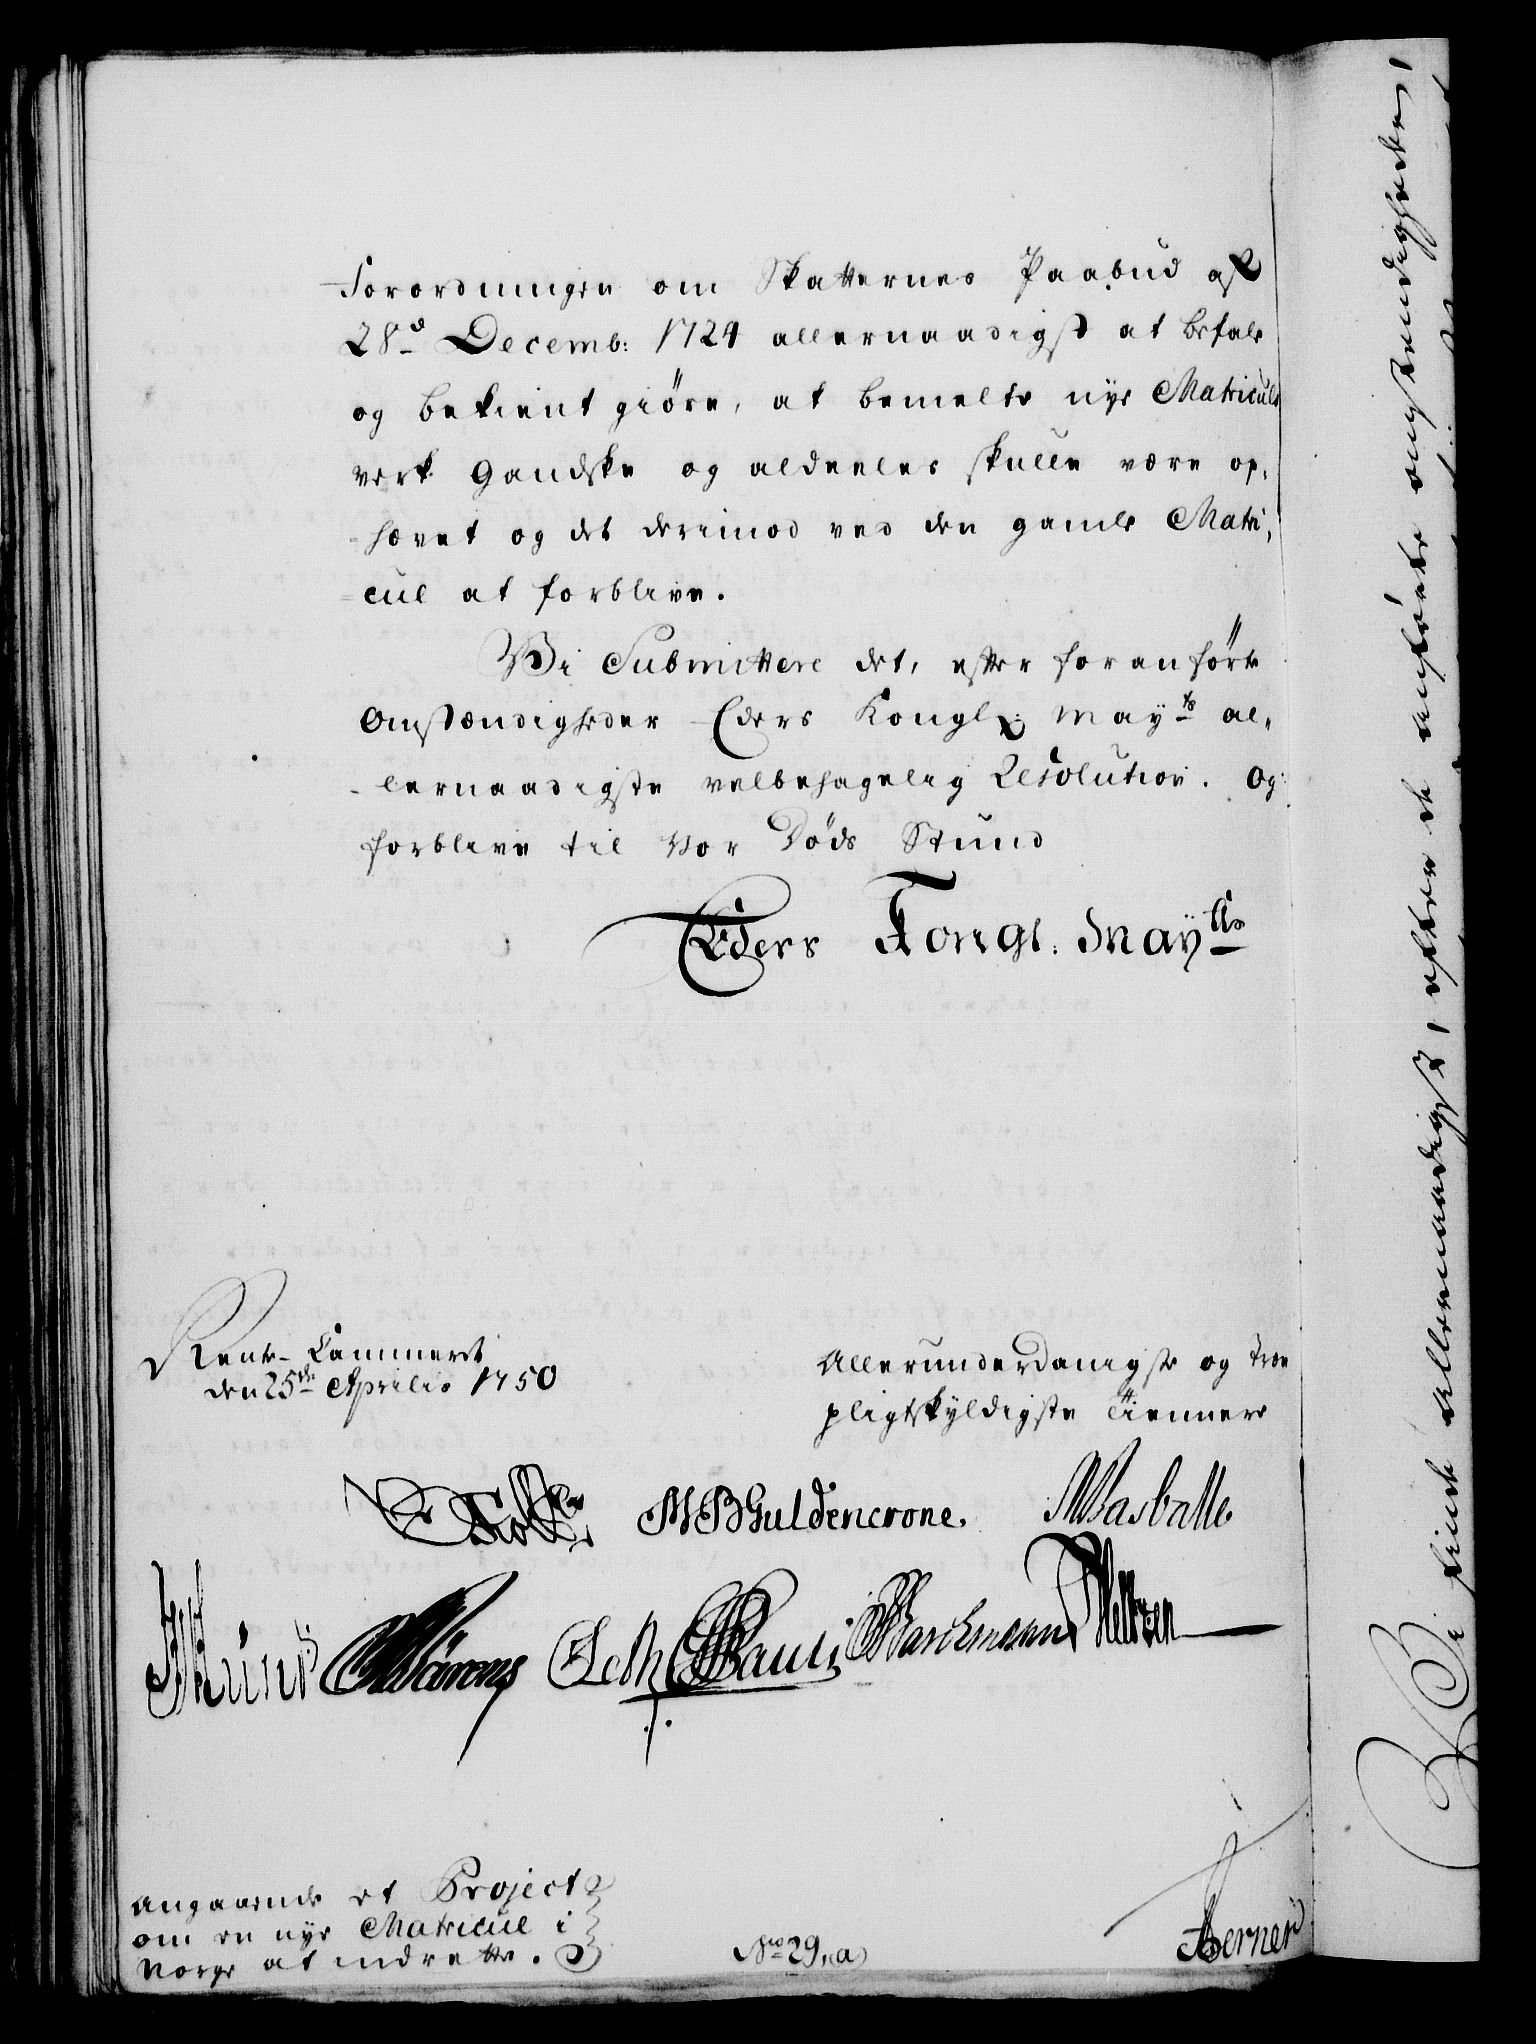 Forordningen om Skatternes Paabud af
28d Decemb: 1724 allernaadigst at befale
og bekient giöre, at bemelte nye Matriculs
verk gandske og aldeeles skulle være op,
hævet og det derimod ved den gamle Matri,
cul at forblive.
Vi Submittere det, efter foranförte
Omstændigheder Eders Kongl: Mayts al,
lernaadigste velbehagelig Resolution. Og
forblive til Vor Döds Stund
Eders Kongl. Mayts
Rente-Cammeret
den 25de Aprilis 1750
Allerunderdanigste og Troe
pligtskyldigste Tiennere
MBGuldencrone.
Pauli
Barchmann
Angaaende et Project
om en nye Matricul i
Norge at indrette.
No 29,(a)
Berner
Vi finde allernaadigst, efter de anförte omstendigheder,